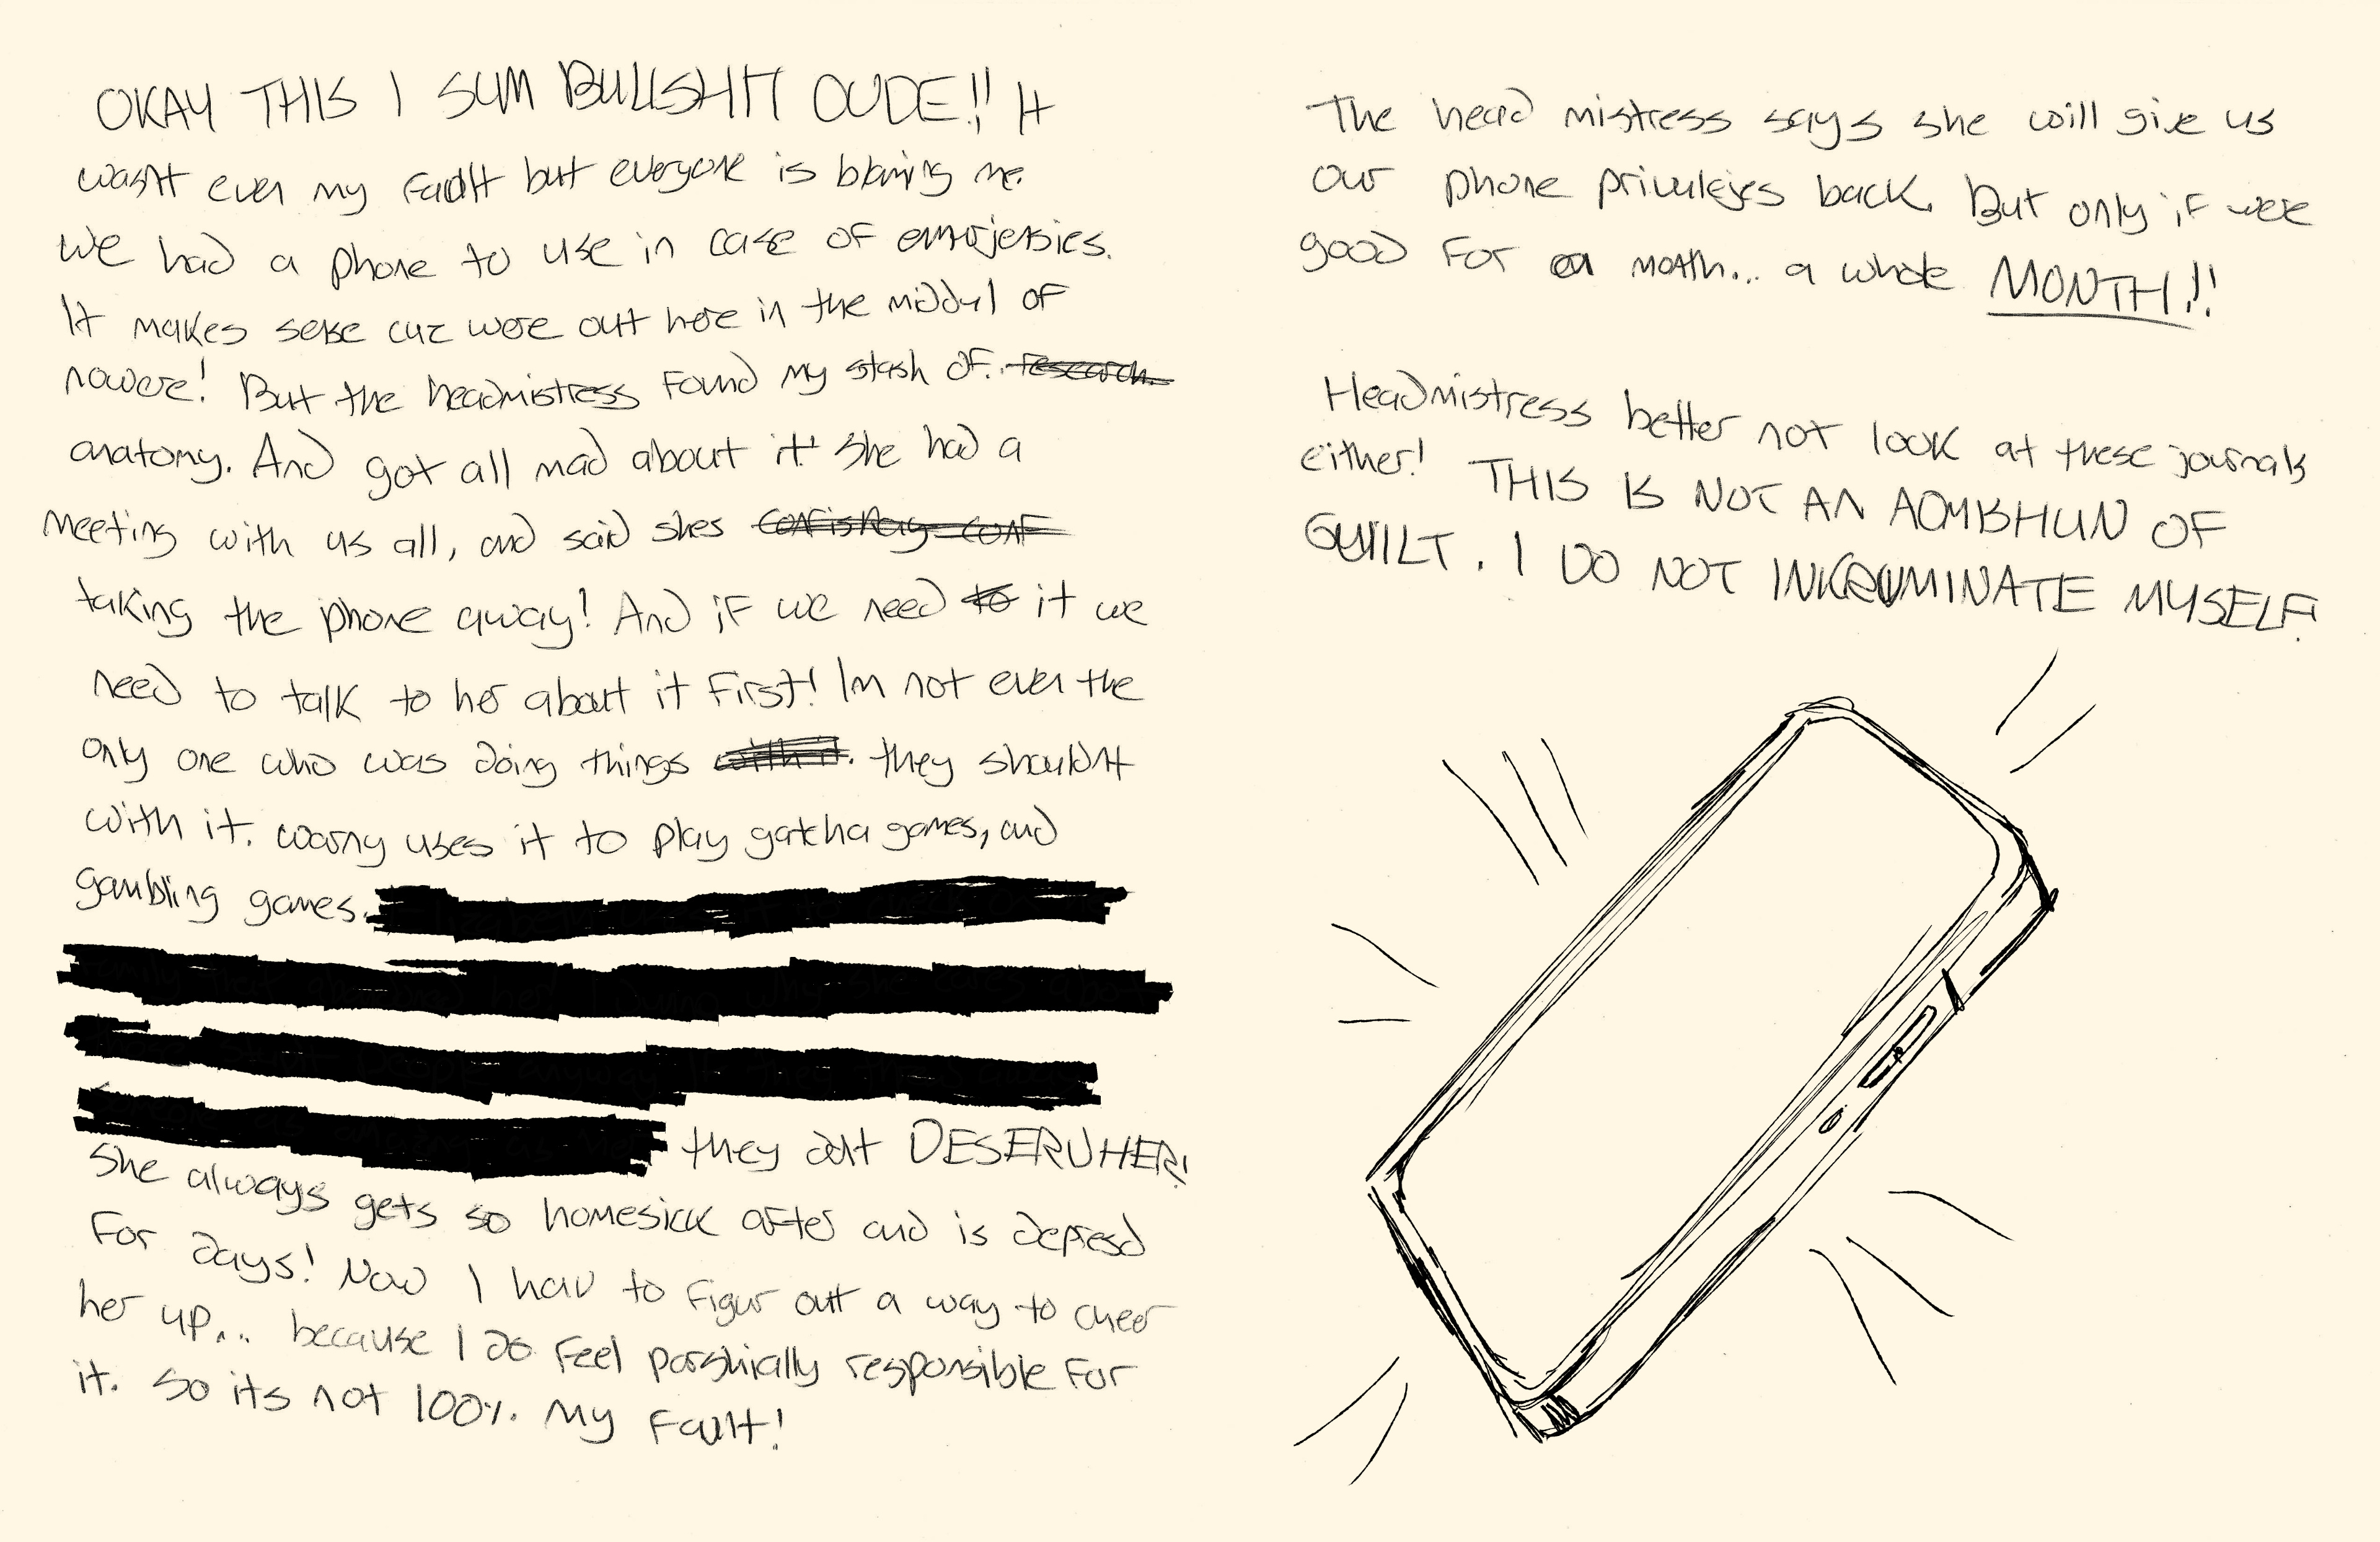 OKAY THIS I SUM BULLSHIT DUDE!! It
wasnt even my fault but everyone is blaming me.
We had a phone to use in case of emurjensies.
It makes sense cuz were out here in the middul of
nowere! But the headmistress found my stash of.. research
anatomy. And got all mad about it! She had a
meeting with us all, and said shes confiskay conf
taking the phone away! And if we need to it we
need to talk to her about it first! Im not even the
only one who was doing things with it. they shouldnt
with it. warny uses it to play gatcha games, and
gambling games.
they dont DESERU HER!
She always gets so homesick after and is depresd
for days! Now I hav to figur out a way to cheer
her up... because I do feel parshially responsible for
it. So its not 100% my fault!
The head mistress says she will give us
our phone privulejes back. But only if were
good for a month... a whole MONTH!!
Headmistress better not look at these journals
either! THIS IS NOT AN ADMISHUN OF
GUILT. I DO NOT INKRUMINATE MYSELF.